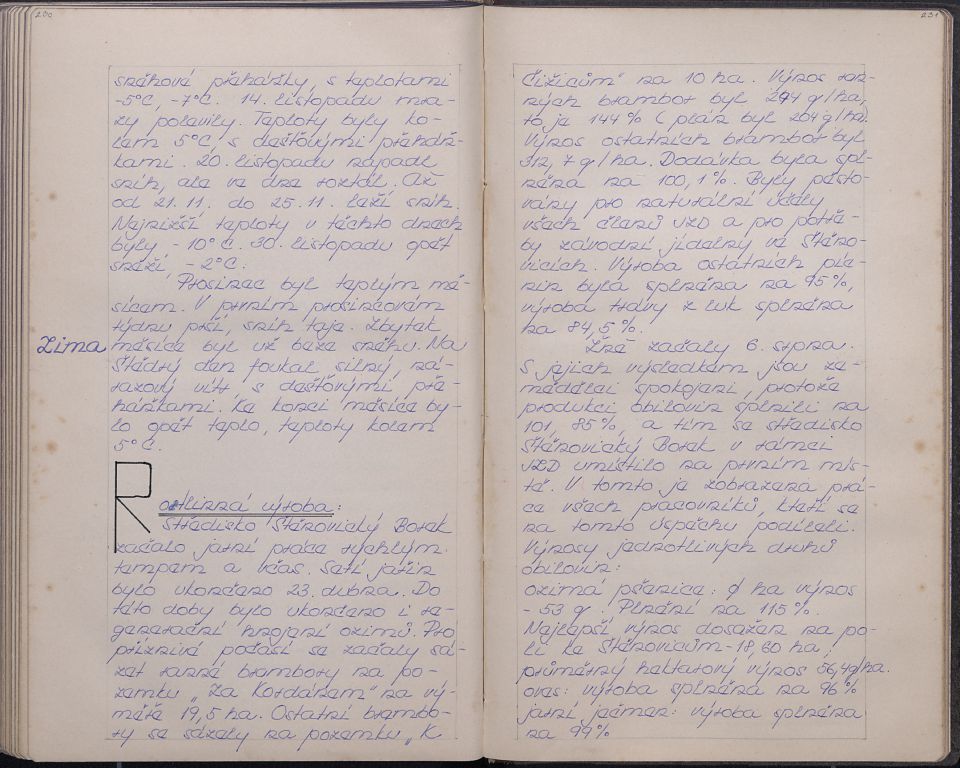 230
sněhové přeháňky, s teplotami
-5°C, -7°C. 14. listopadu mra-
zy polevily. Teploty byly ko-
lem 5°C, s dešťovými přeháň-
kami. 20. listopadu napadl
sníh, ale ve dne roztál. Až
od 21.11. do 25.11. leží sníh.
Nejnižší teploty v těchto dnech
byly -10°C. 30. listopadu opět
sněží, -2°C.
Prosinec byl teplým mě-
sícem. V prvním prosincovém
týdnu prší, sníh taje. Zbytek
Zima
měsíce byl už beze sněhu. Na
Štědrý den foukal silný, ná-
razový vítr, s dešťovými pře-
háňkami. Ke konci měsíce by-
lo opět teplo, teploty kolem
5°C.
Rostlinná výroba:
Středisko Štěnovický Borek
začalo jarní práce rychlým
tempem a včas. Setí jařin
bylo ukončeno 23. dubna. Do
této doby bylo ukončeno i re-
generační hnojení ozimů. Pro
příznivé počasí se začaly sá-
zet ranné brambory na po-
zemku „Za Kordárem" na vý-
měře 19,5 ha. Ostatní brambo-
ry se sázely na pozemku „K
231
Čižicům" na 10 ha. Výnos ran-
ných brambor byl 294 q/ha,
to je 144% (plán byl 204 q/ha).
Výnos ostatních brambor byl
312,7 q/ha. Dodávka byla spl-
něna na 100,1%. Byly pěsto-
vány pro naturální účely
všech členů JZD a pro potře-
by závodní jídelny ve Štěno-
vicích. Výroba ostatních píc-
nin byla splněna na 95%,
výroba trávy z luk splněna
na 84,5%.
Žně začaly 6. srpna.
S jejich výsledkem jsou ze-
mědělci spokojeni, protože
produkci obilovin splnili na
101,85%, a tím se středisko
Štěnovický Borek v rámci
JZD umístilo na prvním mís-
tě. V tomto je zobrazena prá-
ce všech pracovníků, kteří se
na tomto úspěchu podíleli.
Výnosy jednotlivých druhů
obilovin:
ozimá pšenice: ∅ ha výnos
- 53 q. Plnění na 115%.
Nejlepší výnos dosažen na po-
li ke Štěnovicům - 18,60 ha,
průměrný hektarový výnos 56,4q/ha.
oves: výroba splněna na 96%
jarní ječmen: výroba splněna
na 99%